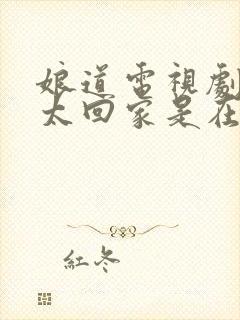 娘道電視劇
太回家是在
紅冬